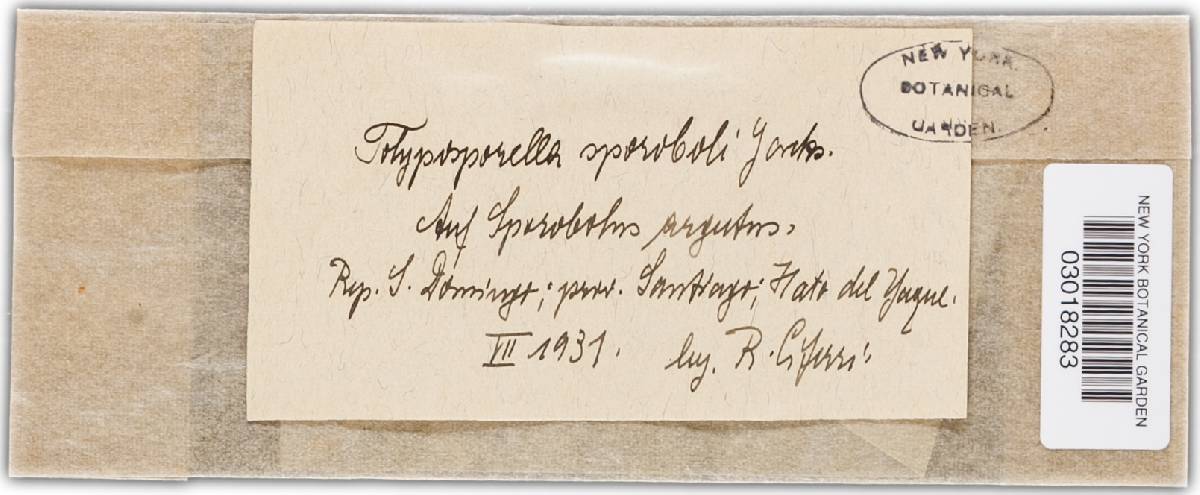 NEW YORK
BOTANICAL
GARDEN.
Tolyposporella sporoboli Jacks.
Auf Sporobolus argutus.
Rep. S. Domingo; prov. Santiago; Hato del Yaque.
VII 1931. leg. R. Ciferri.
NEW YORK BOTANICAL GARDEN
03018283